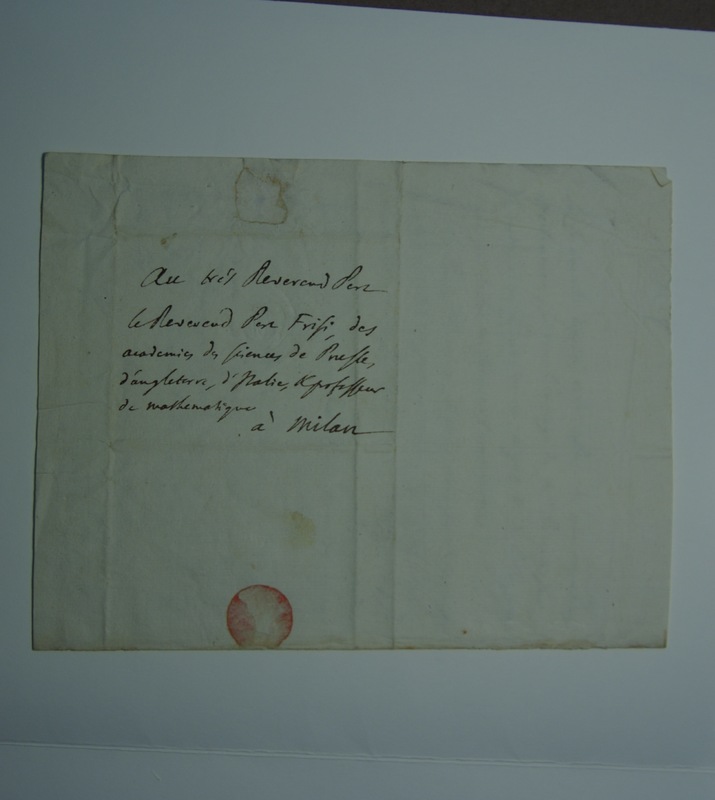 Au très Reverend Pere
le Reverend Pere Frisi, des
academies des sciences de Prusse,
d'angleterre, d'Italie, & professeur
de mathematique
à Milan